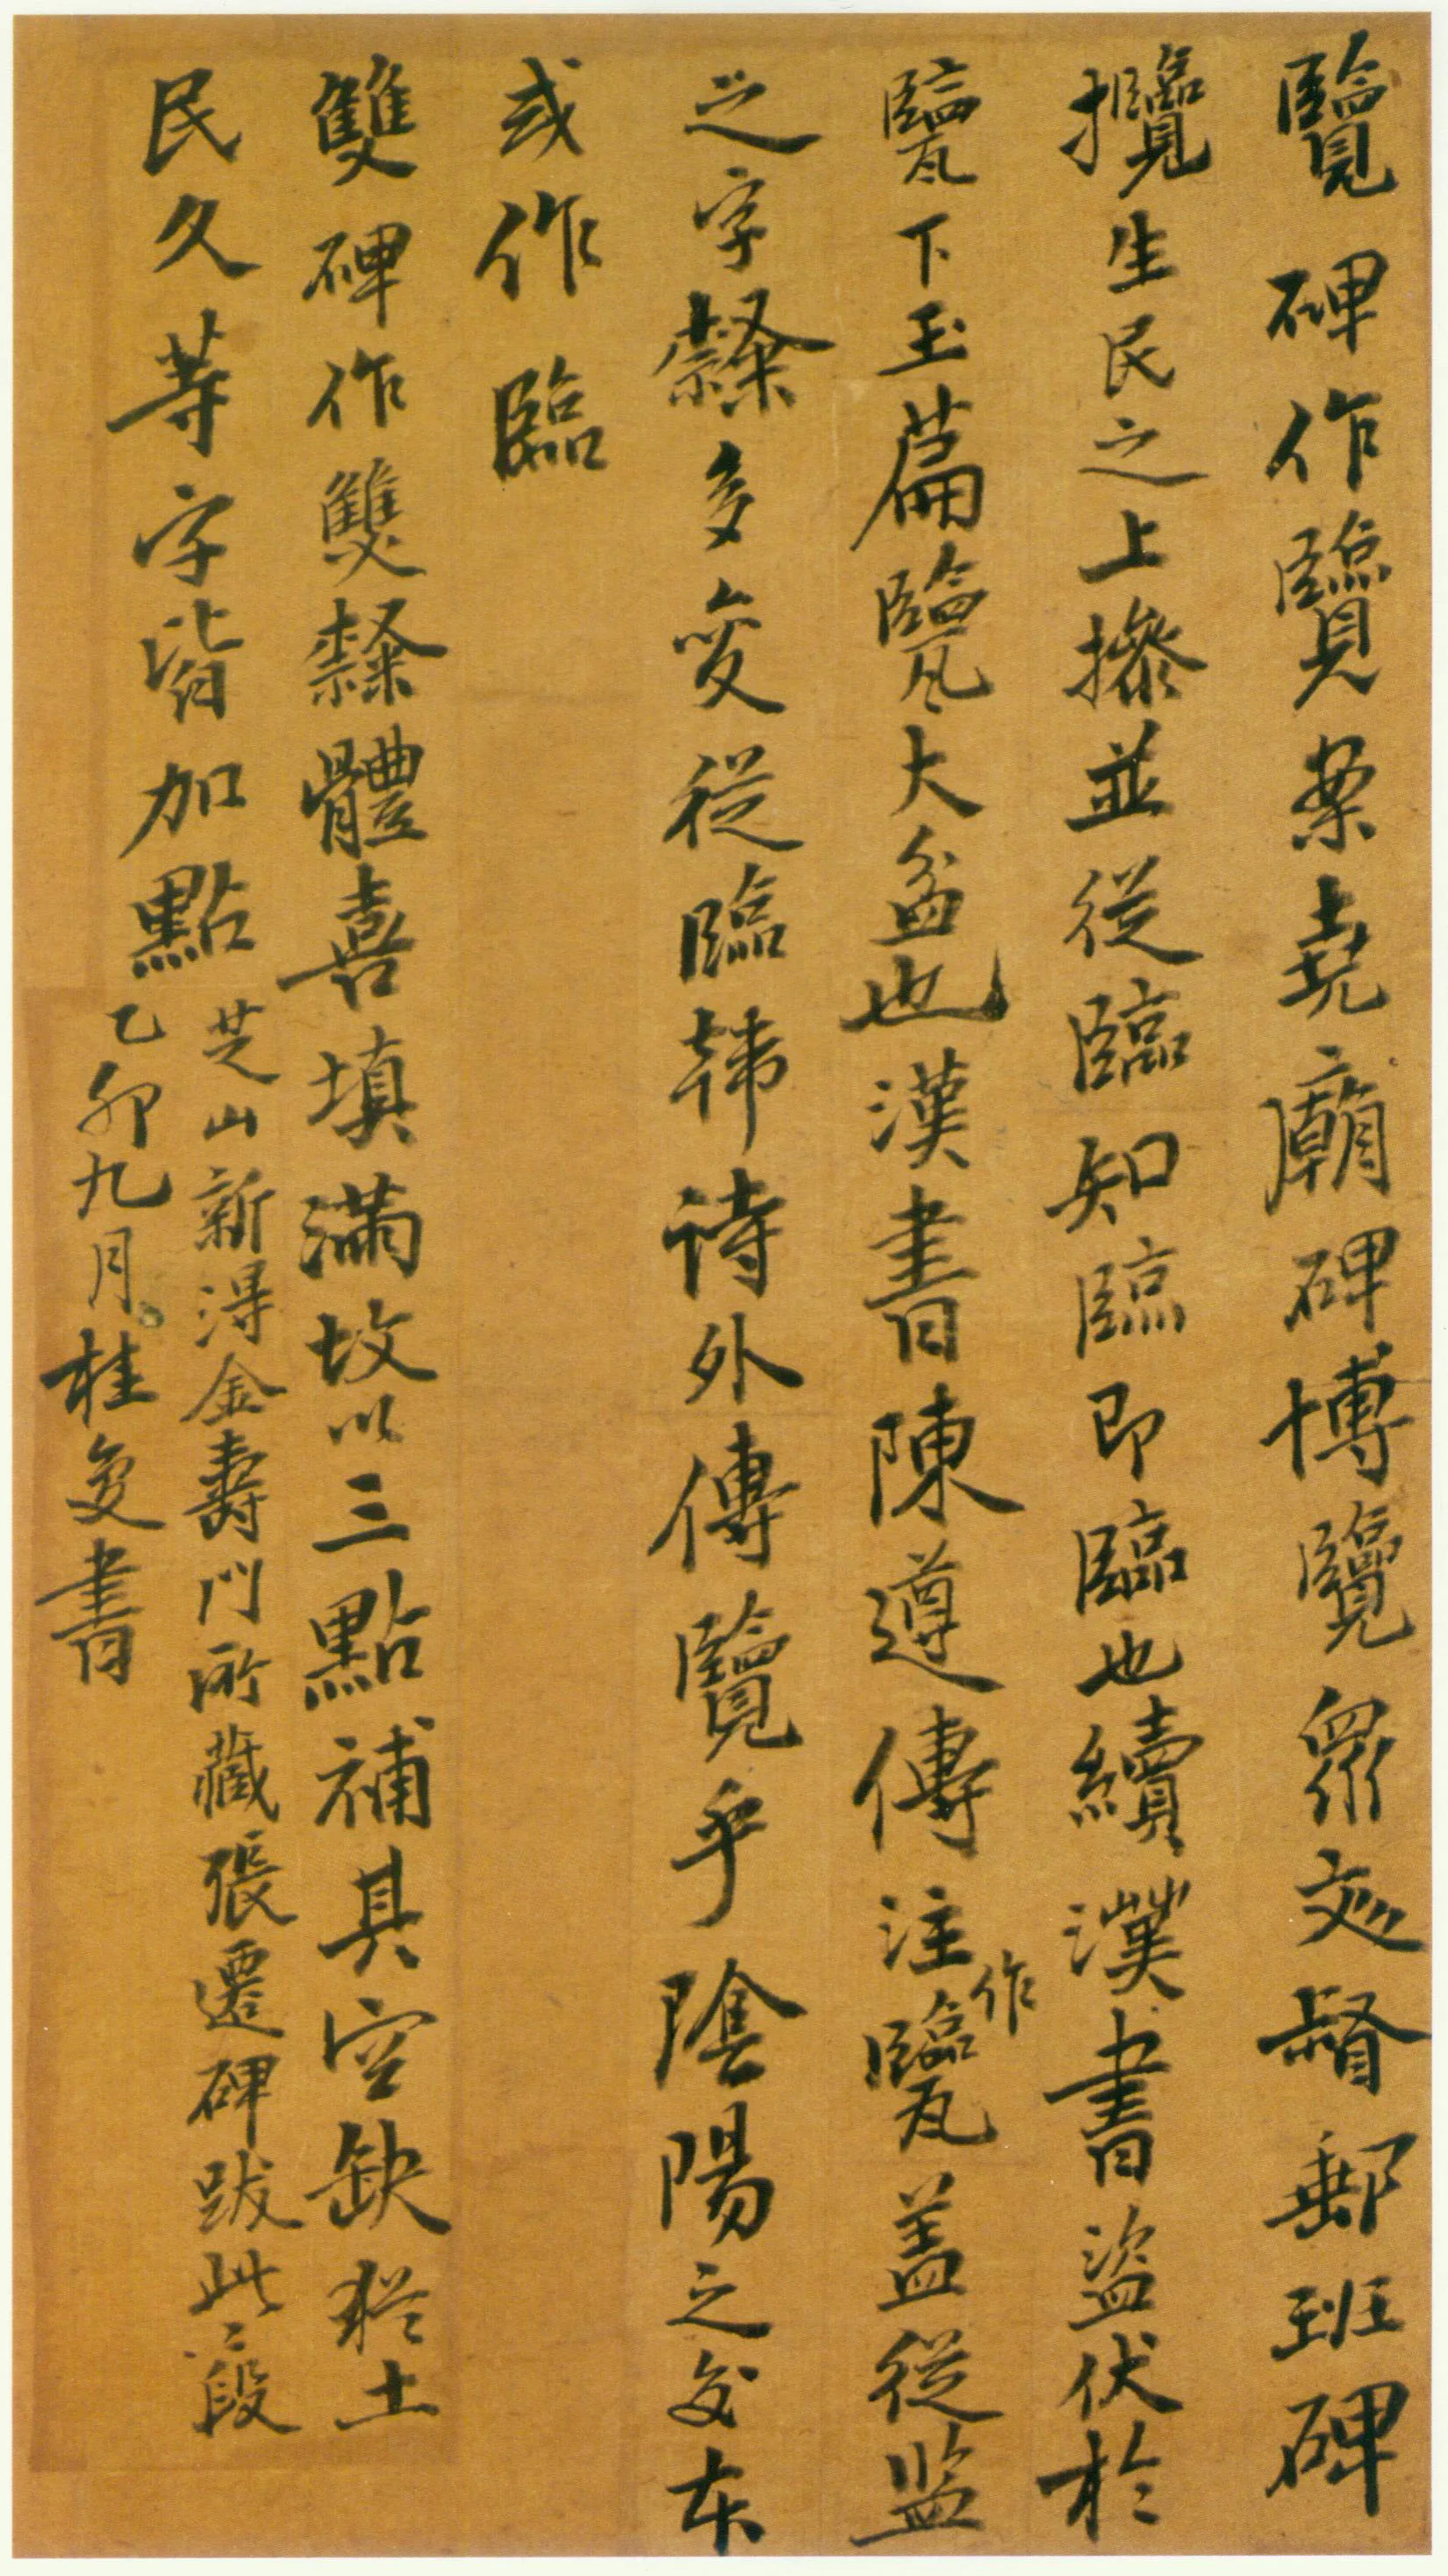 覽碑作覽案堯廟碑博覽眾文督郵班碑
攬生民之上摻並從臨知臨即臨也續漢書盜伏於
甖下玉篇甖大盆也漢書陳遵傳注作甖蓋從監
之字隸多變從臨韓詩外傳覽乎陰陽之交本
或作臨
雙碑作雙隸體喜填滿故以三點補其空缺猶土
民久等字皆加點
芝山新淂金壽門所藏張遷碑跋此二段
乙卯九月桂馥書